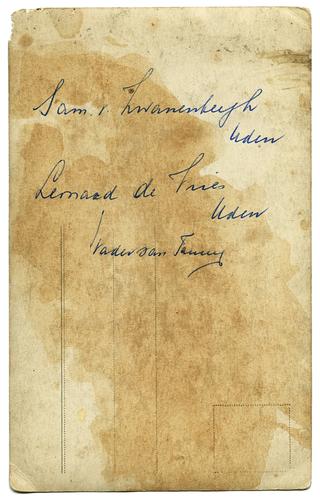 Sam. v. Zwanenbergh
Uden
Leonard de Vries
Uden
Vader van Fanny